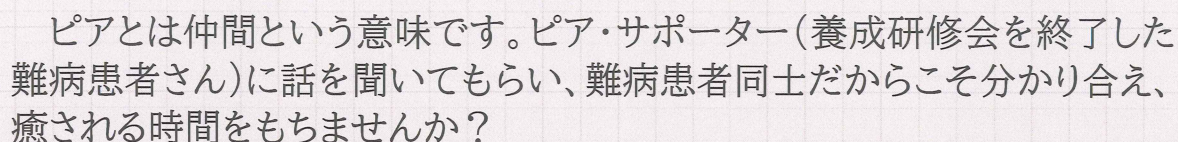 ピアとは仲間という意味です。ピア・サポーター（養成研修会を終了した
難病患者さん）に話を聞いてもらい、難病患者同士だからこそ分かり合え、
癒される時間をもちませんか？